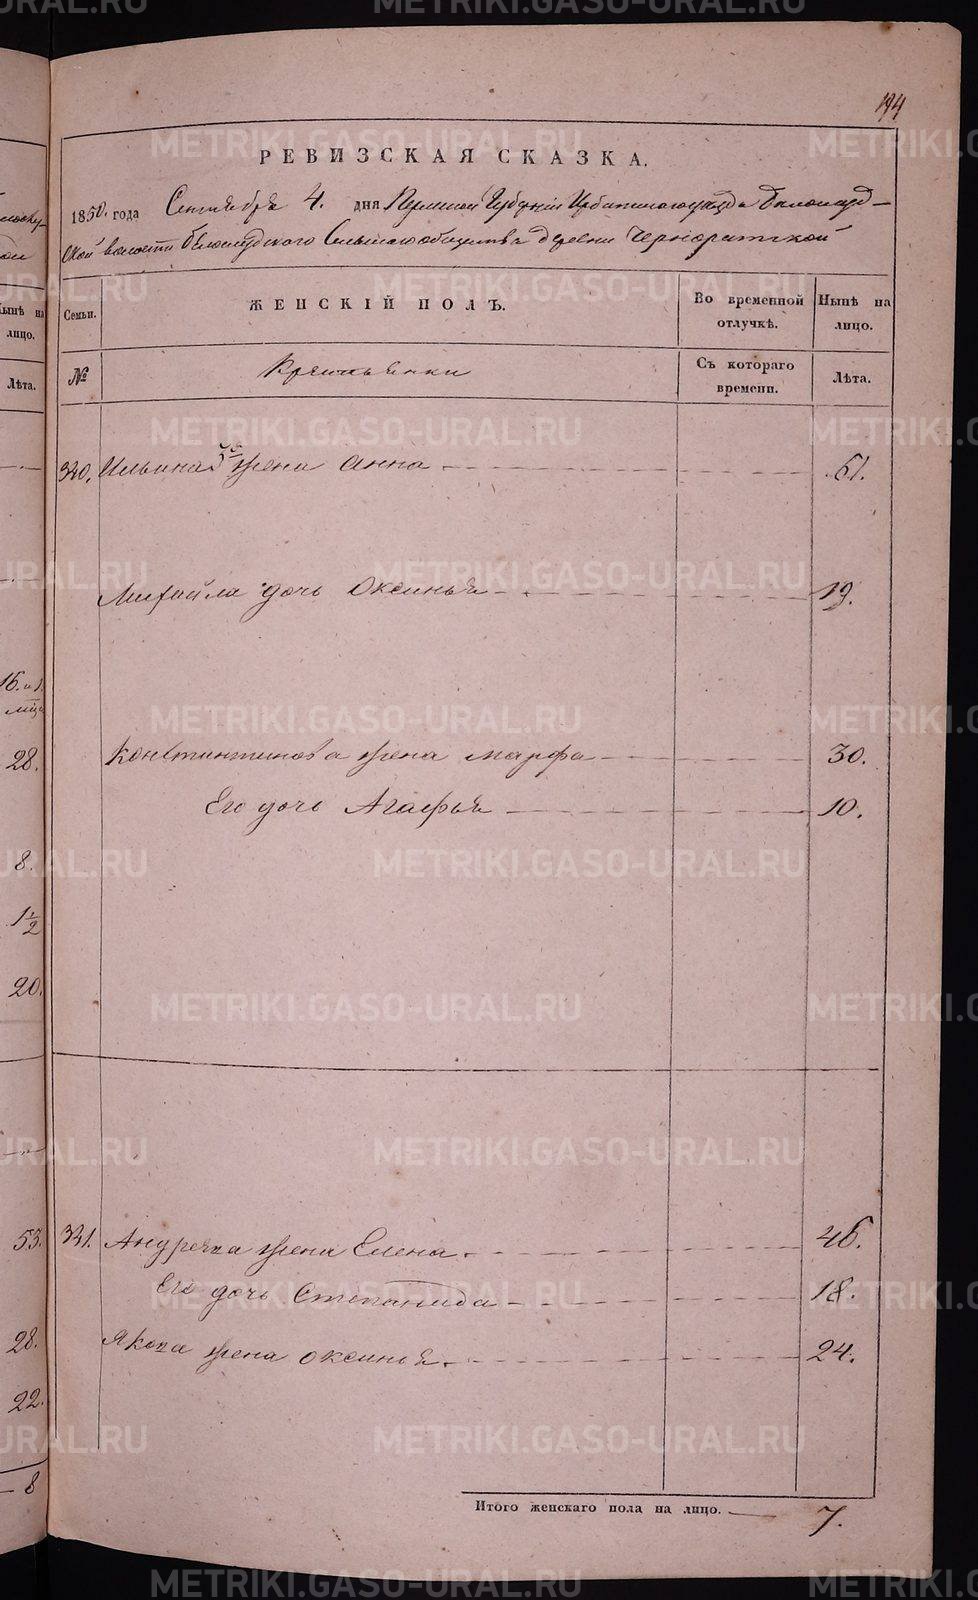 194
РЕВИЗСКАЯ СКАЗКА.
1850. года Сентября 4. дня Пермской Губернии Ирбитского уезда Белослуд-
ской волости Белослудского Сельского общества деревни
Семьи.
ЖЕНСКІЙ ПОЛЪ.
Во временной отлучкѣ.
Нынѣ на лицо.
№
Крестьянки
Съ котораго времени.
Лѣта.
340. Ильина жена Анна 61.
Михайла дочь Оксинья 19.
Констинтинова жена Марфа 30.
Его дочь Агафья 10.
341. Андреяна жена Елена 46.
Его дочь Степанида 18.
Якова жена Оксинья 24.
Итого женскаго пола на лицо. 7.
Нынѣ на лицо.
Лѣта.
28.
8.
1 1/2
20.
53.
28.
22.
8
METRIKI.GASO-URAL.RU